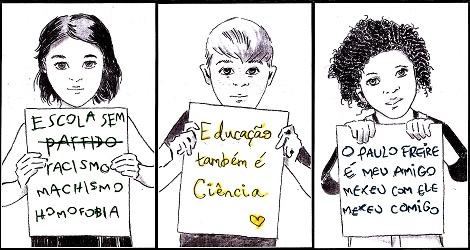 ESCOLA SEM
PARTIDO
RACISMO
MACHISMO
HOMOFOBIA
Educação
também é
Ciência
O PAULO FREIRE
É MEU AMIGO
MEXEU COM ELE
MEXEU COMIGO